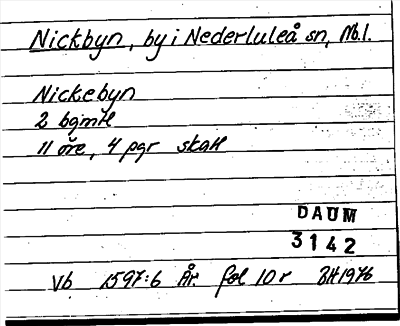 Nickbyn, by i Nederluleå sn, Nb.l.
Nickebyn
2 bgmtl
11 öre, 4 pgr skatt
DAUM
3142
Vb 1597:6 År. fol 10 r BH1976